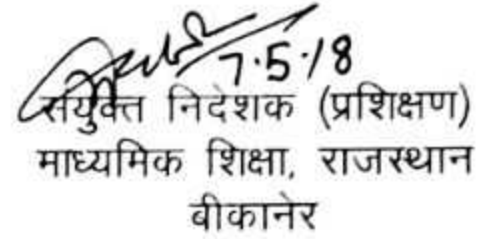 7.5.18
संयुक्त निदेशक (प्रशिक्षण)
माध्यमिक शिक्षा, राजस्थान
बीकानेर